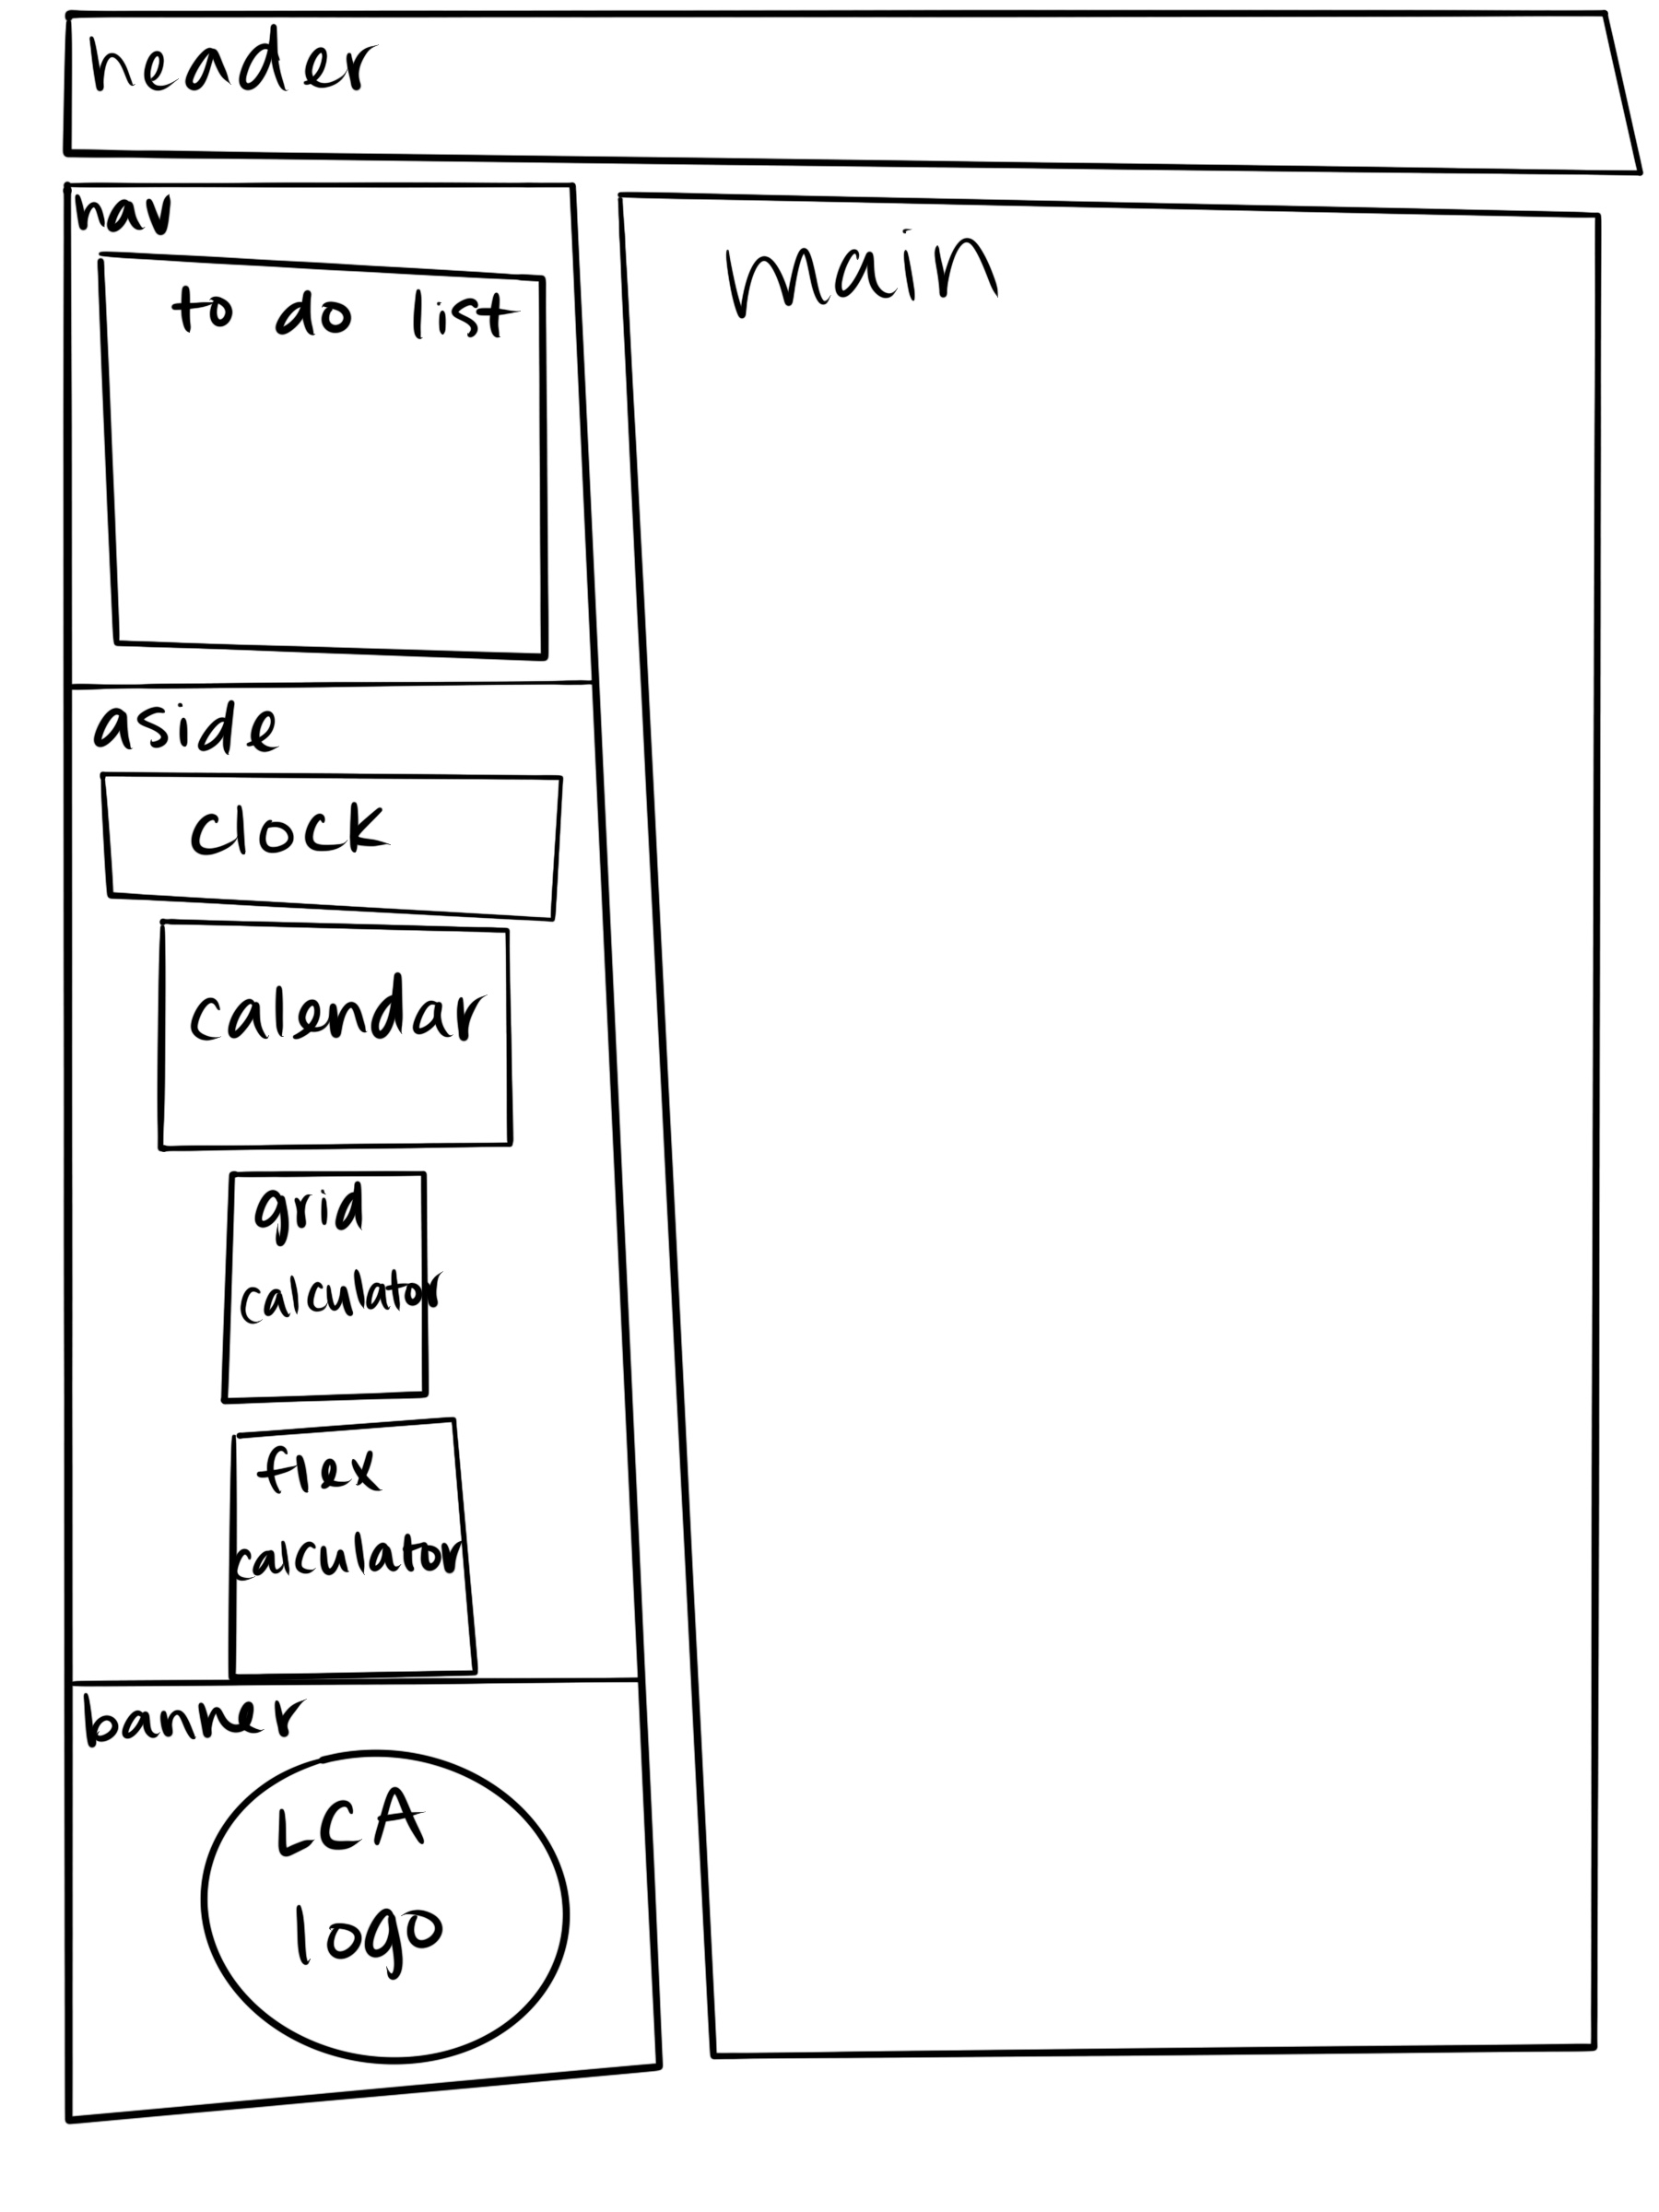 header
nav
to do list
main
aside
clock
calendar
grid
calculator
flex
calculator
banner
LCA
logo